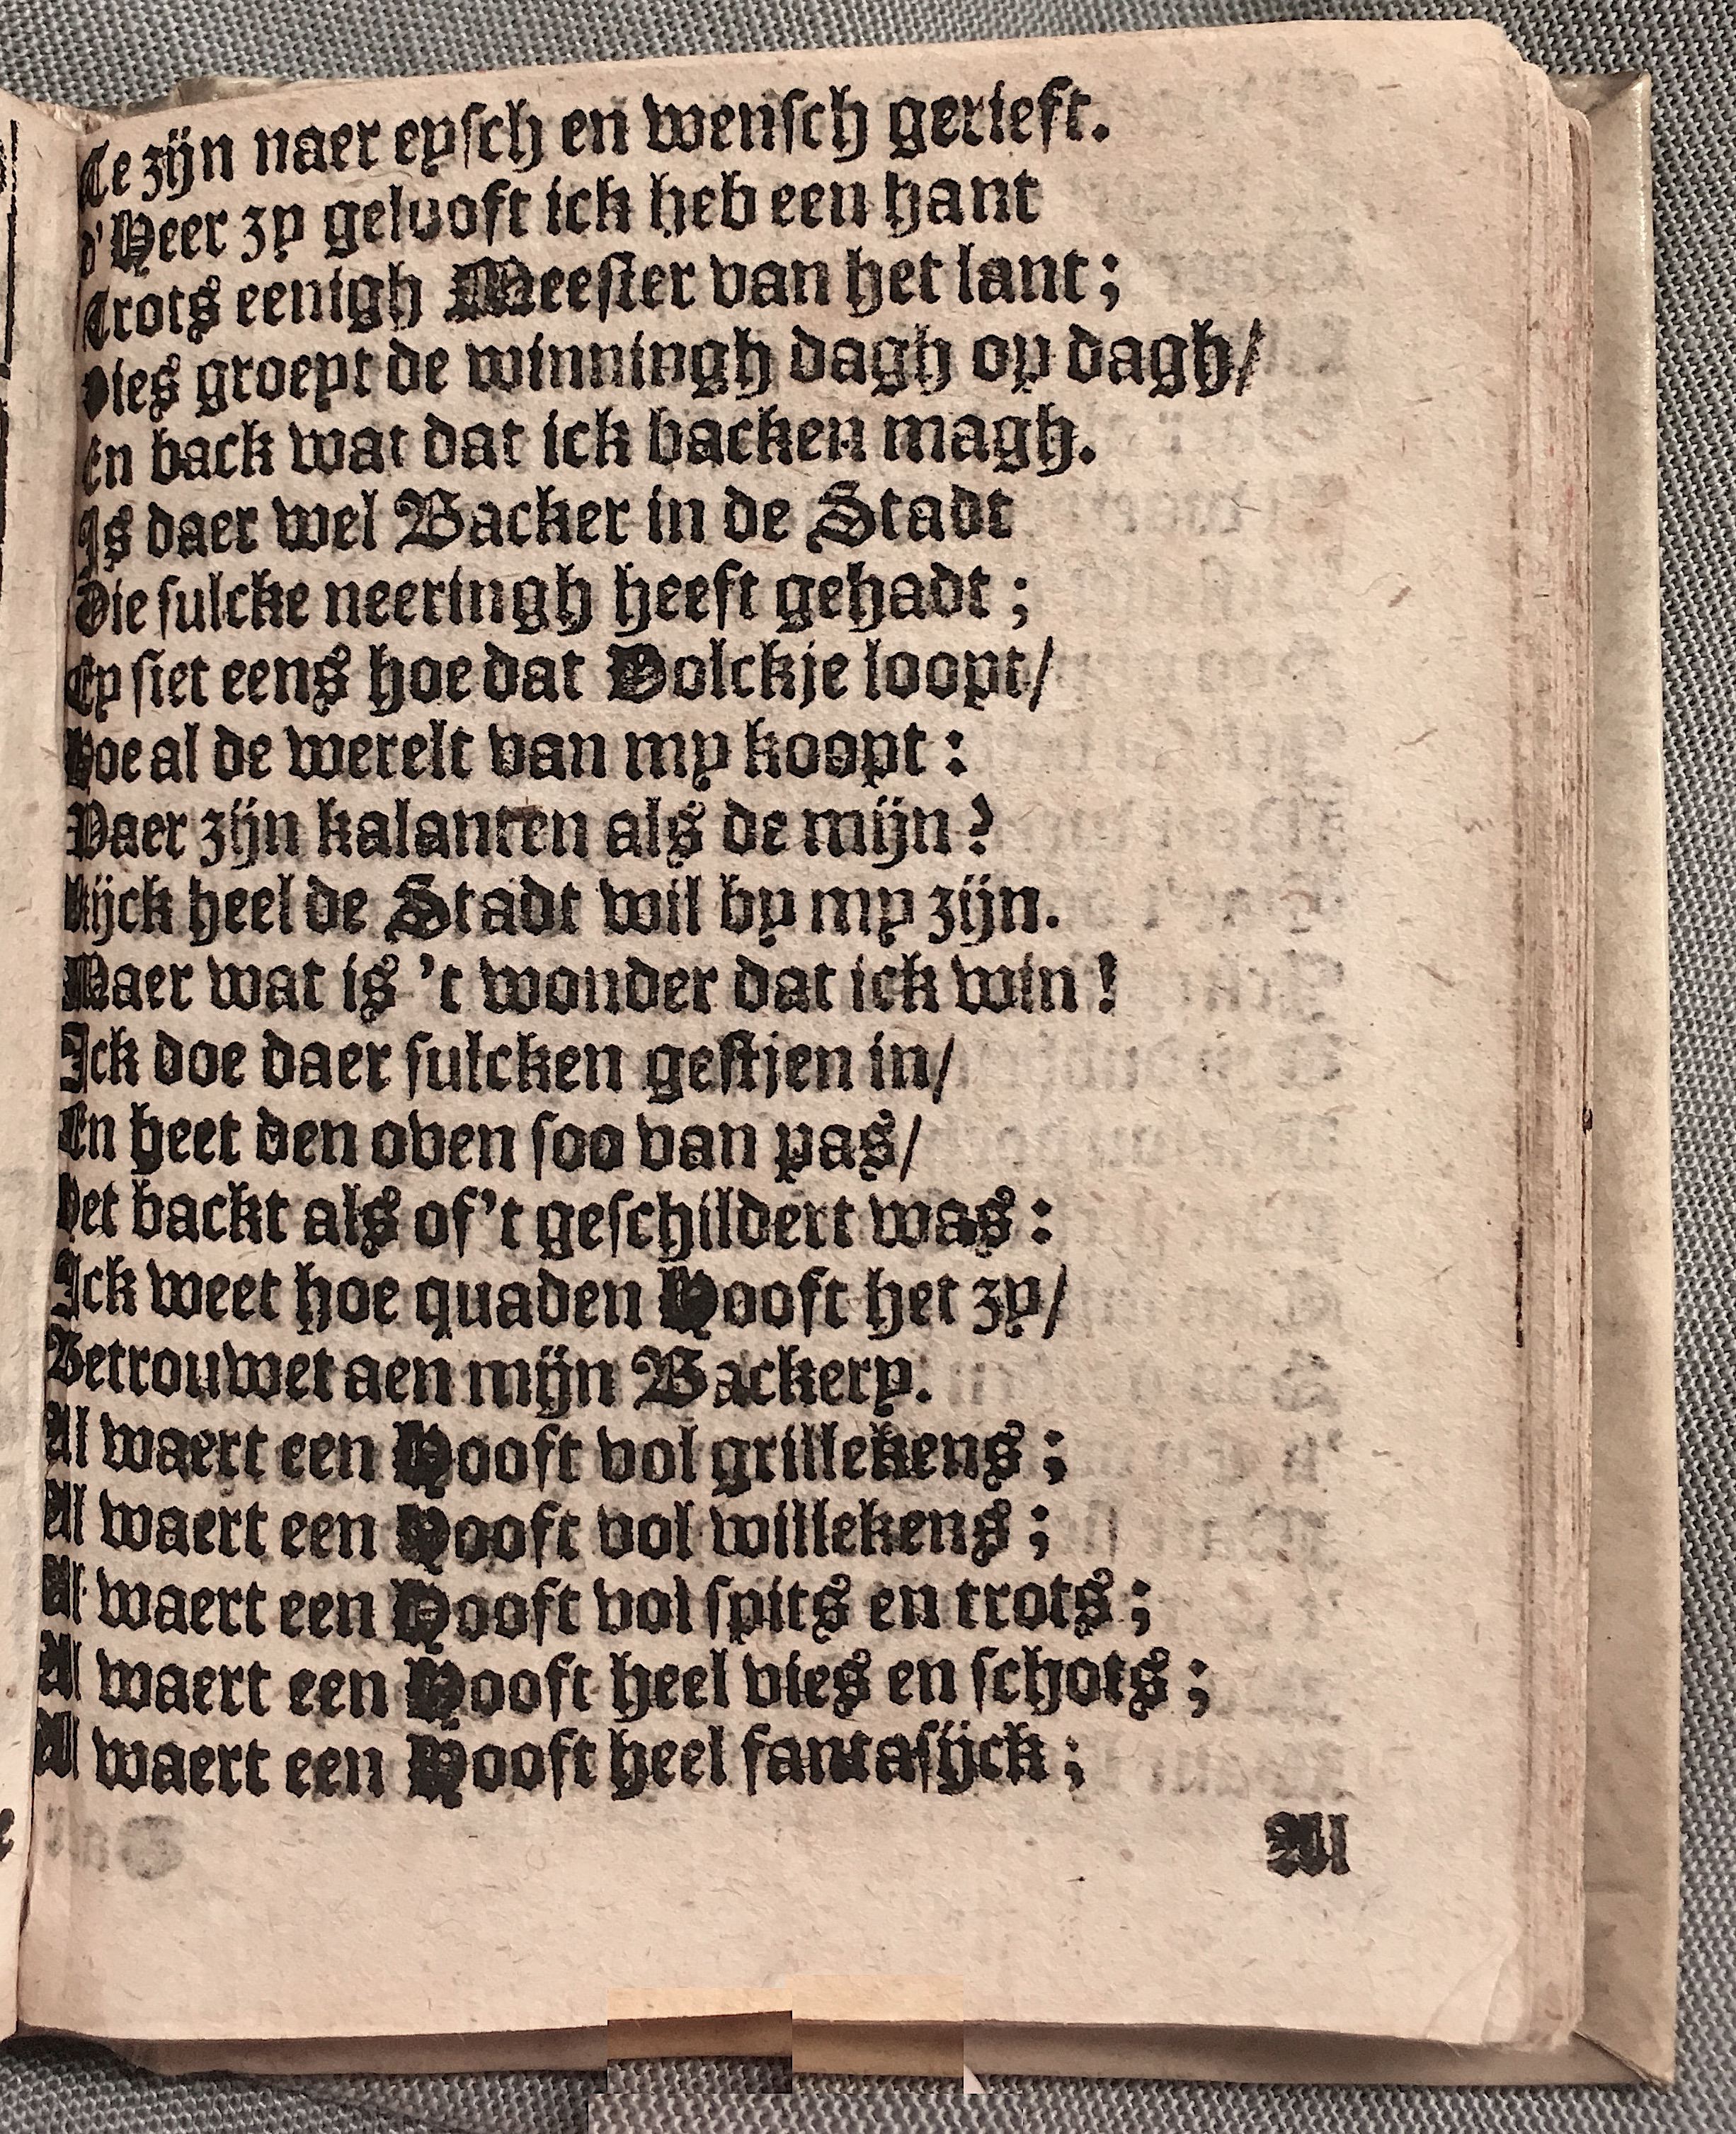 Te zijn naer eysch en wensch gerieft.
d'Heer zy gelooft ick heb een hant
Trots eenigh Meester van het lant;
Dies groeyt de winningh dagh op dagh/
En back wat dat ick backen magh.
Is daer wel Backer in de Stadt
Die sulcke neeringh heeft gehadt;
Ey siet eens hoe dat Volckje loopt/
Hoe al de werelt van my koopt:
Waer zijn kalanten als de mijn?
Kijck heel de Stadt wil by my zijn.
Maer wat is 't wonder dat ick win!
Ick doe daer sulcken gestjen in/
En heet den oven soo van pas/
Het backt als of't geschildert was:
Ick weet hoe quaden Hooft het zy/
Betrouwet aen mijn Backery.
Al waert een Hooft vol grillekens;
Al waert een Hooft vol willekens;
Al waert een Hooft vol spits en trots;
Al waert een Hooft heel vies en schots;
Al waert een Hooft heel fantasijck;
Al